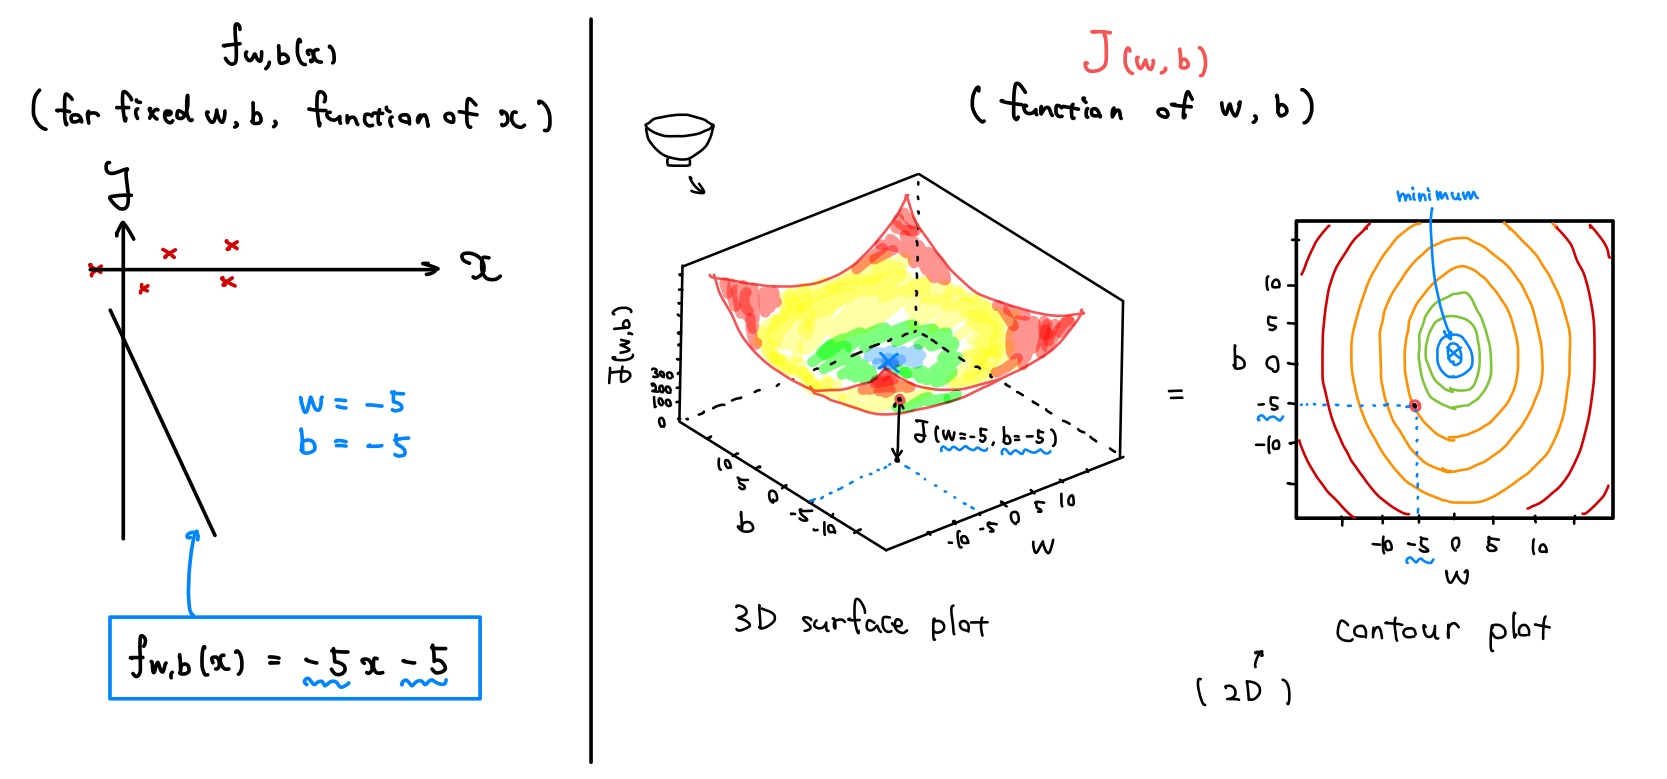 fw,b(x)
(for fixed w, b, function of x)
y
x
w = -5
b = -5
fw,b(x) = -5x -5
J(w,b)
(function of w, b)
J(w,b)
300
200
100
0
10
5
0
-5
-10
b
J(w=-5, b=-5)
-10
-5
0
5
10
w
3D surface plot
=
minimum
10
5
b 0
-5
-10
-10 -5 0 5 10
w
contour plot
(2D)